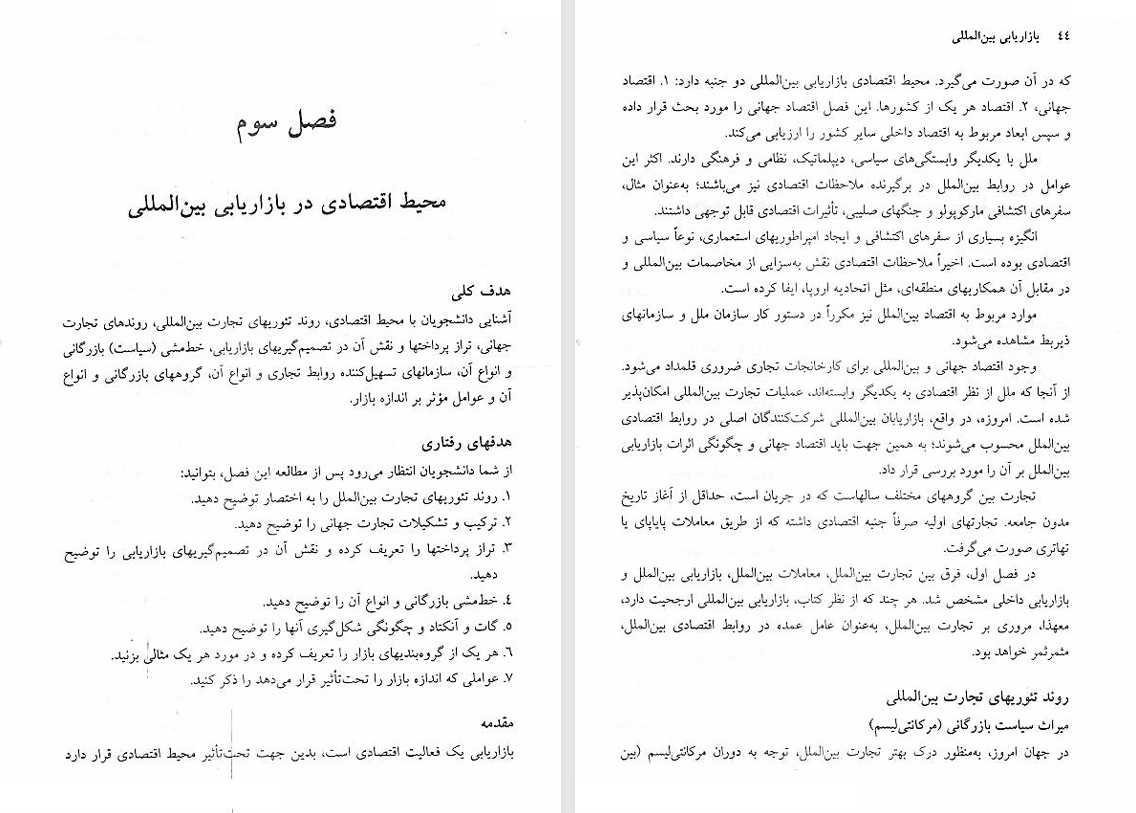 فصل سوم
محیط اقتصادی در بازاریابی بین‌المللی
هدف کلی
آشنایی دانشجویان با محیط اقتصادی، روند تئوریهای تجارت بین‌المللی، روندهای تجارت
جهانی، تراز پرداختها و نقش آن در تصمیم‌گیریهای بازاریابی، خط‌مشی (سیاست) بازرگانی
و انواع آن، سازمانهای تسهیل‌کننده روابط تجاری و انواع آن، گروههای بازرگانی و انواع
آن و عوامل مؤثر بر اندازه بازار.
هدفهای رفتاری
از شما دانشجویان انتظار می‌رود پس از مطالعه این فصل، بتوانید:
۱. روند تئوریهای تجارت بین‌الملل را به اختصار توضیح دهید.
۲. ترکیب و تشکیلات تجارت جهانی را توضیح دهید.
۳. تراز پرداختها را تعریف کرده و نقش آن در تصمیم‌گیریهای بازاریابی را توضیح
دهید.
٤. خط‌مشی بازرگانی و انواع آن را توضیح دهید.
۵. گات و آنکتاد و چگونگی شکل‌گیری آنها را توضیح دهید.
٦. هر یک از گروه‌بندیهای بازار را تعریف کرده و در مورد هر یک مثالی بزنید.
۷. عواملی که اندازه بازار را تحت‌تأثیر قرار می‌دهد را ذکر کنید.
مقدمه
بازاریابی یک فعالیت اقتصادی است، بدین جهت تحت‌تأثیر محیط اقتصادی قرار دارد
٤٤ بازاریابی بین‌المللی
که در آن صورت می‌گیرد. محیط اقتصادی بازاریابی بین‌المللی دو جنبه دارد: ۱. اقتصاد
جهانی، ۲. اقتصاد هر یک از کشورها. این فصل اقتصاد جهانی را مورد بحث قرار داده
و سپس ابعاد مربوط به اقتصاد داخلی سایر کشور را ارزیابی می‌کند.
ملل با یکدیگر وابستگی‌های سیاسی، دیپلماتیک، نظامی و فرهنگی دارند. اکثر این
عوامل در روابط بین‌الملل در برگیرنده ملاحظات اقتصادی نیز می‌باشند؛ به‌عنوان مثال،
سفرهای اکتشافی مارکوپولو و جنگهای صلیبی، تأثیرات اقتصادی قابل توجهی داشتند.
انگیزه بسیاری از سفرهای اکتشافی و ایجاد امپراطوریهای استعماری، نوعاً سیاسی و
اقتصادی بوده است. اخیراً ملاحظات اقتصادی نقش به‌سزایی از مخاصمات بین‌المللی و
در مقابل آن همکاریهای منطقه‌ای، مثل اتحادیه اروپا، ایفا کرده است.
موارد مربوط به اقتصاد بین‌الملل نیز مکرراً در دستور کار سازمان ملل و سازمانهای
ذیربط مشاهده می‌شود.
وجود اقتصاد جهانی و بین‌المللی برای کارخانجات تجاری ضروری قلمداد می‌شود.
از آنجا که ملل از نظر اقتصادی به یکدیگر وابسته‌اند، عملیات تجارت بین‌المللی امکان‌پذیر
شده است. امروزه، در واقع، بازاریابان بین‌المللی شرکت‌کنندگان اصلی در روابط اقتصادی
بین‌الملل محسوب می‌شوند؛ به همین جهت باید اقتصاد جهانی و چگونگی اثرات بازاریابی
بین‌الملل بر آن را مورد بررسی قرار داد.
تجارت بین گروههای مختلف سالهاست که در جریان است، حداقل از آغاز تاریخ
مدون جامعه. تجارتهای اولیه صرفاً جنبه اقتصادی داشته که از طریق معاملات پایاپای یا
تهاتری صورت می‌گرفت.
در فصل اول، فرق بین تجارت بین‌الملل، معاملات بین‌الملل، بازاریابی بین‌الملل و
بازاریابی داخلی مشخص شد. هر چند که از نظر کتاب، بازاریابی بین‌المللی ارجحیت دارد،
معهذا، مروری بر تجارت بین‌الملل، به‌عنوان عامل عمده در روابط اقتصادی بین‌الملل،
مثمرثمر خواهد بود.
روند تئوریهای تجارت بین‌المللی
میراث سیاست بازرگانی (مرکانتی‌لیسم)
در جهان امروز، به‌منظور درک بهتر تجارت بین‌الملل، توجه به دوران مرکانتی‌لیسم (بین